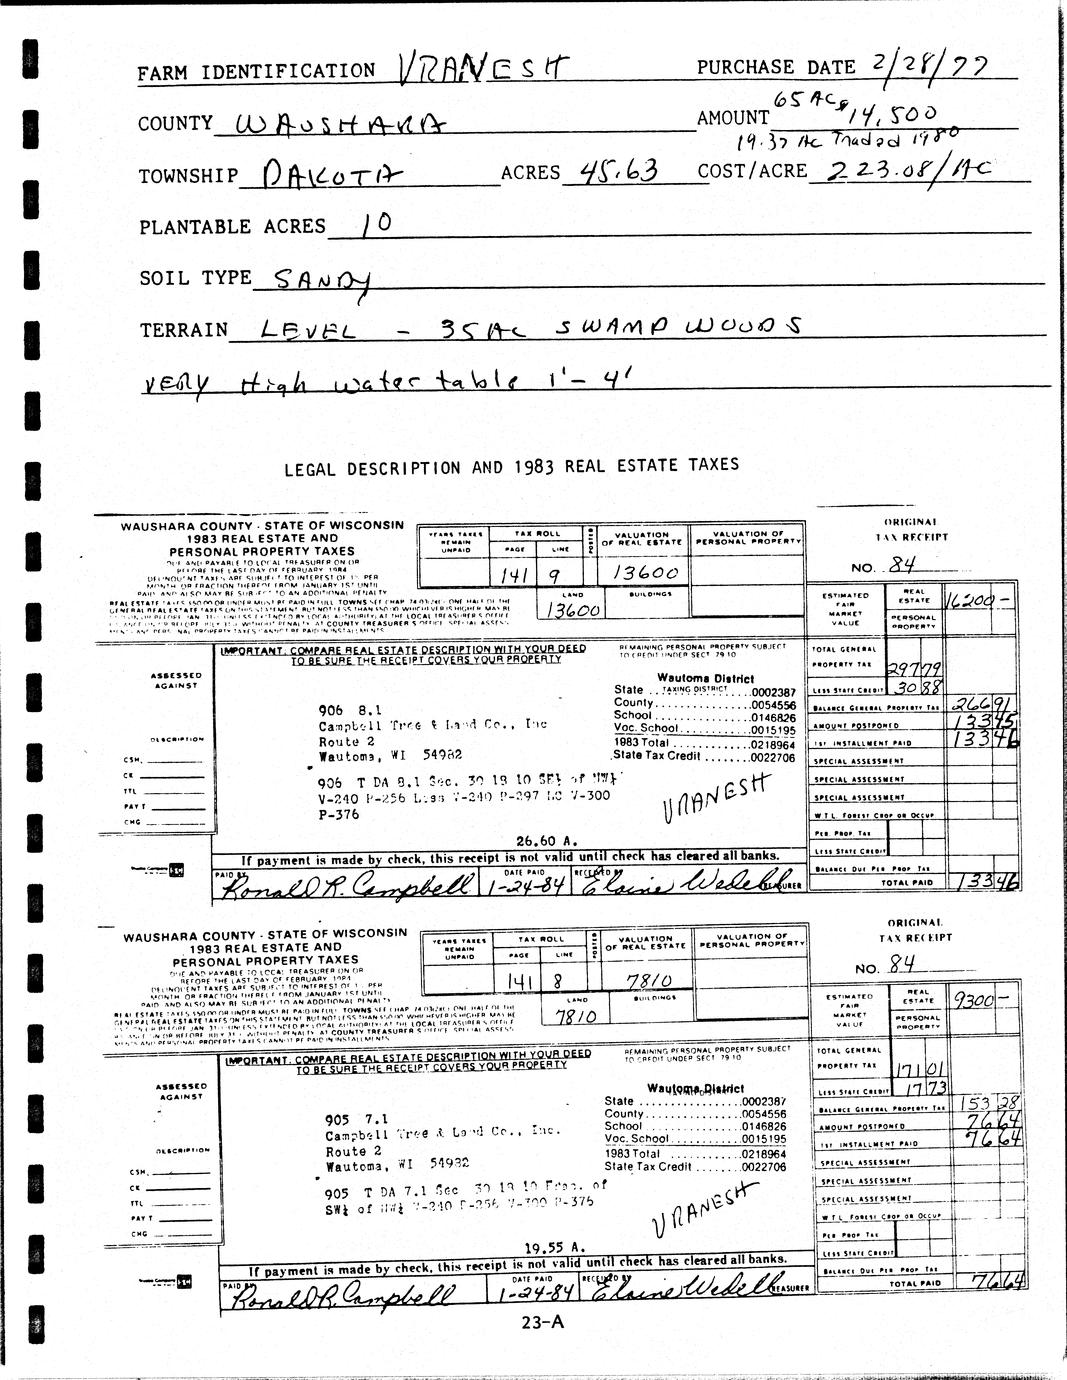 FARM IDENTIFICATION VRANESH PURCHASE DATE 2/28/77
65 AC
COUNTY WAUSHARA AMOUNT $14,500
19.37 Ac Traded 1980
TOWNSHIP DAKOTA ACRES 45.63 COST/ACRE 223.08/AC
PLANTABLE ACRES 10
SOIL TYPE SANDY
TERRAIN LEVEL - 35 AC SWAMP WOODS
VERY High water table 1' - 4'
LEGAL DESCRIPTION AND 1983 REAL ESTATE TAXES
WAUSHARA COUNTY - STATE OF WISCONSIN
1983 REAL ESTATE AND
PERSONAL PROPERTY TAXES
DUE AND PAYABLE TO LOCAL TREASURER ON OR
BEFORE THE LAST DAY OF FEBRUARY 1984
DELINQUENT TAXES ARE SUBJECT TO INTEREST OF 1% PER
MONTH OR FRACTION THEREOF FROM JANUARY 1ST UNTIL
PAID AND ALSO MAY BE SUBJECT TO AN ADDITIONAL PENALTY
YEARS TAXES REMAIN UNPAID
TAX ROLL
PAGE LINE
141 9
POSTED
VALUATION OF REAL ESTATE
13600
VALUATION OF PERSONAL PROPERTY
LAND BUILDINGS
13600
ORIGINAL
TAX RECEIPT
NO. 84
ESTIMATED FAIR MARKET VALUE
REAL ESTATE 16200-
PERSONAL PROPERTY
IMPORTANT: COMPARE REAL ESTATE DESCRIPTION WITH YOUR DEED
TO BE SURE THE RECEIPT COVERS YOUR PROPERTY
REMAINING PERSONAL PROPERTY SUBJECT
TO CREDIT UNDER SECT 79 10
ASSESSED
AGAINST
906 8.1
Campbell Tree & Land Co., Inc
Route 2
Wautoma, WI 54982
DESCRIPTION
CSH.
CK
TTL
PAY T
CHG
906 T DA 8.1 Sec. 30 18 10 SE¼ of NW¼
V-240 P-256 Less V-240 P-297 V-300
P-376
26.60 A.
Wautoma District
TAXING DISTRICT
State ........0002387
County........0054556
School ........0146826
Voc. School........0015195
1983 Total ........0218964
State Tax Credit........0022706
VRANESH
TOTAL GENERAL
PROPERTY TAX 297 79
LESS STATE CREDIT 30 88
BALANCE GENERAL PROPERTY TAX 266 91
AMOUNT POSTPONED 133 45
1ST INSTALLMENT PAID 133 46
SPECIAL ASSESSMENT
SPECIAL ASSESSMENT
SPECIAL ASSESSMENT
W.T.L. FOREST CROP OR OCCUP
PER. PROP. TAX
LESS STATE CREDIT
BALANCE DUE PER PROP TAX
TOTAL PAID 133 46
If payment is made by check, this receipt is not valid until check has cleared all banks.
PAID BY Ronald R. Campbell DATE PAID 1-24-84 RECEIVED BY Elaine Wedell TREASURER
WAUSHARA COUNTY - STATE OF WISCONSIN
1983 REAL ESTATE AND
PERSONAL PROPERTY TAXES
DUE AND PAYABLE TO LOCAL TREASURER ON OR
BEFORE THE LAST DAY OF FEBRUARY 1984
DELINQUENT TAXES ARE SUBJECT TO INTEREST OF 1% PER
MONTH OR FRACTION THEREOF FROM JANUARY 1ST UNTIL
PAID AND ALSO MAY BE SUBJECT TO AN ADDITIONAL PENALTY
YEARS TAXES REMAIN UNPAID
TAX ROLL
PAGE LINE
141 8
POSTED
VALUATION OF REAL ESTATE
7810
VALUATION OF PERSONAL PROPERTY
LAND BUILDINGS
7810
ORIGINAL
TAX RECEIPT
NO. 84
ESTIMATED FAIR MARKET VALUE
REAL ESTATE 9300-
PERSONAL PROPERTY
IMPORTANT: COMPARE REAL ESTATE DESCRIPTION WITH YOUR DEED
TO BE SURE THE RECEIPT COVERS YOUR PROPERTY
REMAINING PERSONAL PROPERTY SUBJECT
TO CREDIT UNDER SECT 79 10
ASSESSED
AGAINST
905 7.1
Campbell Tree & Land Co., Inc.
Route 2
Wautoma, WI 54982
DESCRIPTION
CSH.
CK
TTL
PAY T
CHG
905 T DA 7.1 Sec 30 18 10 Frac. of
SW¼ of NW¼ V-240 P-256 V-300 P-376
19.55 A.
Wautoma District
State ........0002387
County ........0054556
School ........0146826
Voc. School ........0015195
1983 Total ........0218964
State Tax Credit ........0022706
VRANESH
TOTAL GENERAL
PROPERTY TAX 171 01
LESS STATE CREDIT 17 73
BALANCE GENERAL PROPERTY TAX 153 28
AMOUNT POSTPONED 76 64
1ST INSTALLMENT PAID 76 64
SPECIAL ASSESSMENT
SPECIAL ASSESSMENT
SPECIAL ASSESSMENT
W.T.L. FOREST CROP OR OCCUP
PER PROP TAX
LESS STATE CREDIT
BALANCE DUE PER PROP TAX
TOTAL PAID 76 64
If payment is made by check, this receipt is not valid until check has cleared all banks.
PAID BY Ronald R. Campbell DATE PAID 1-24-84 RECEIVED BY Elaine Wedell TREASURER
23-A